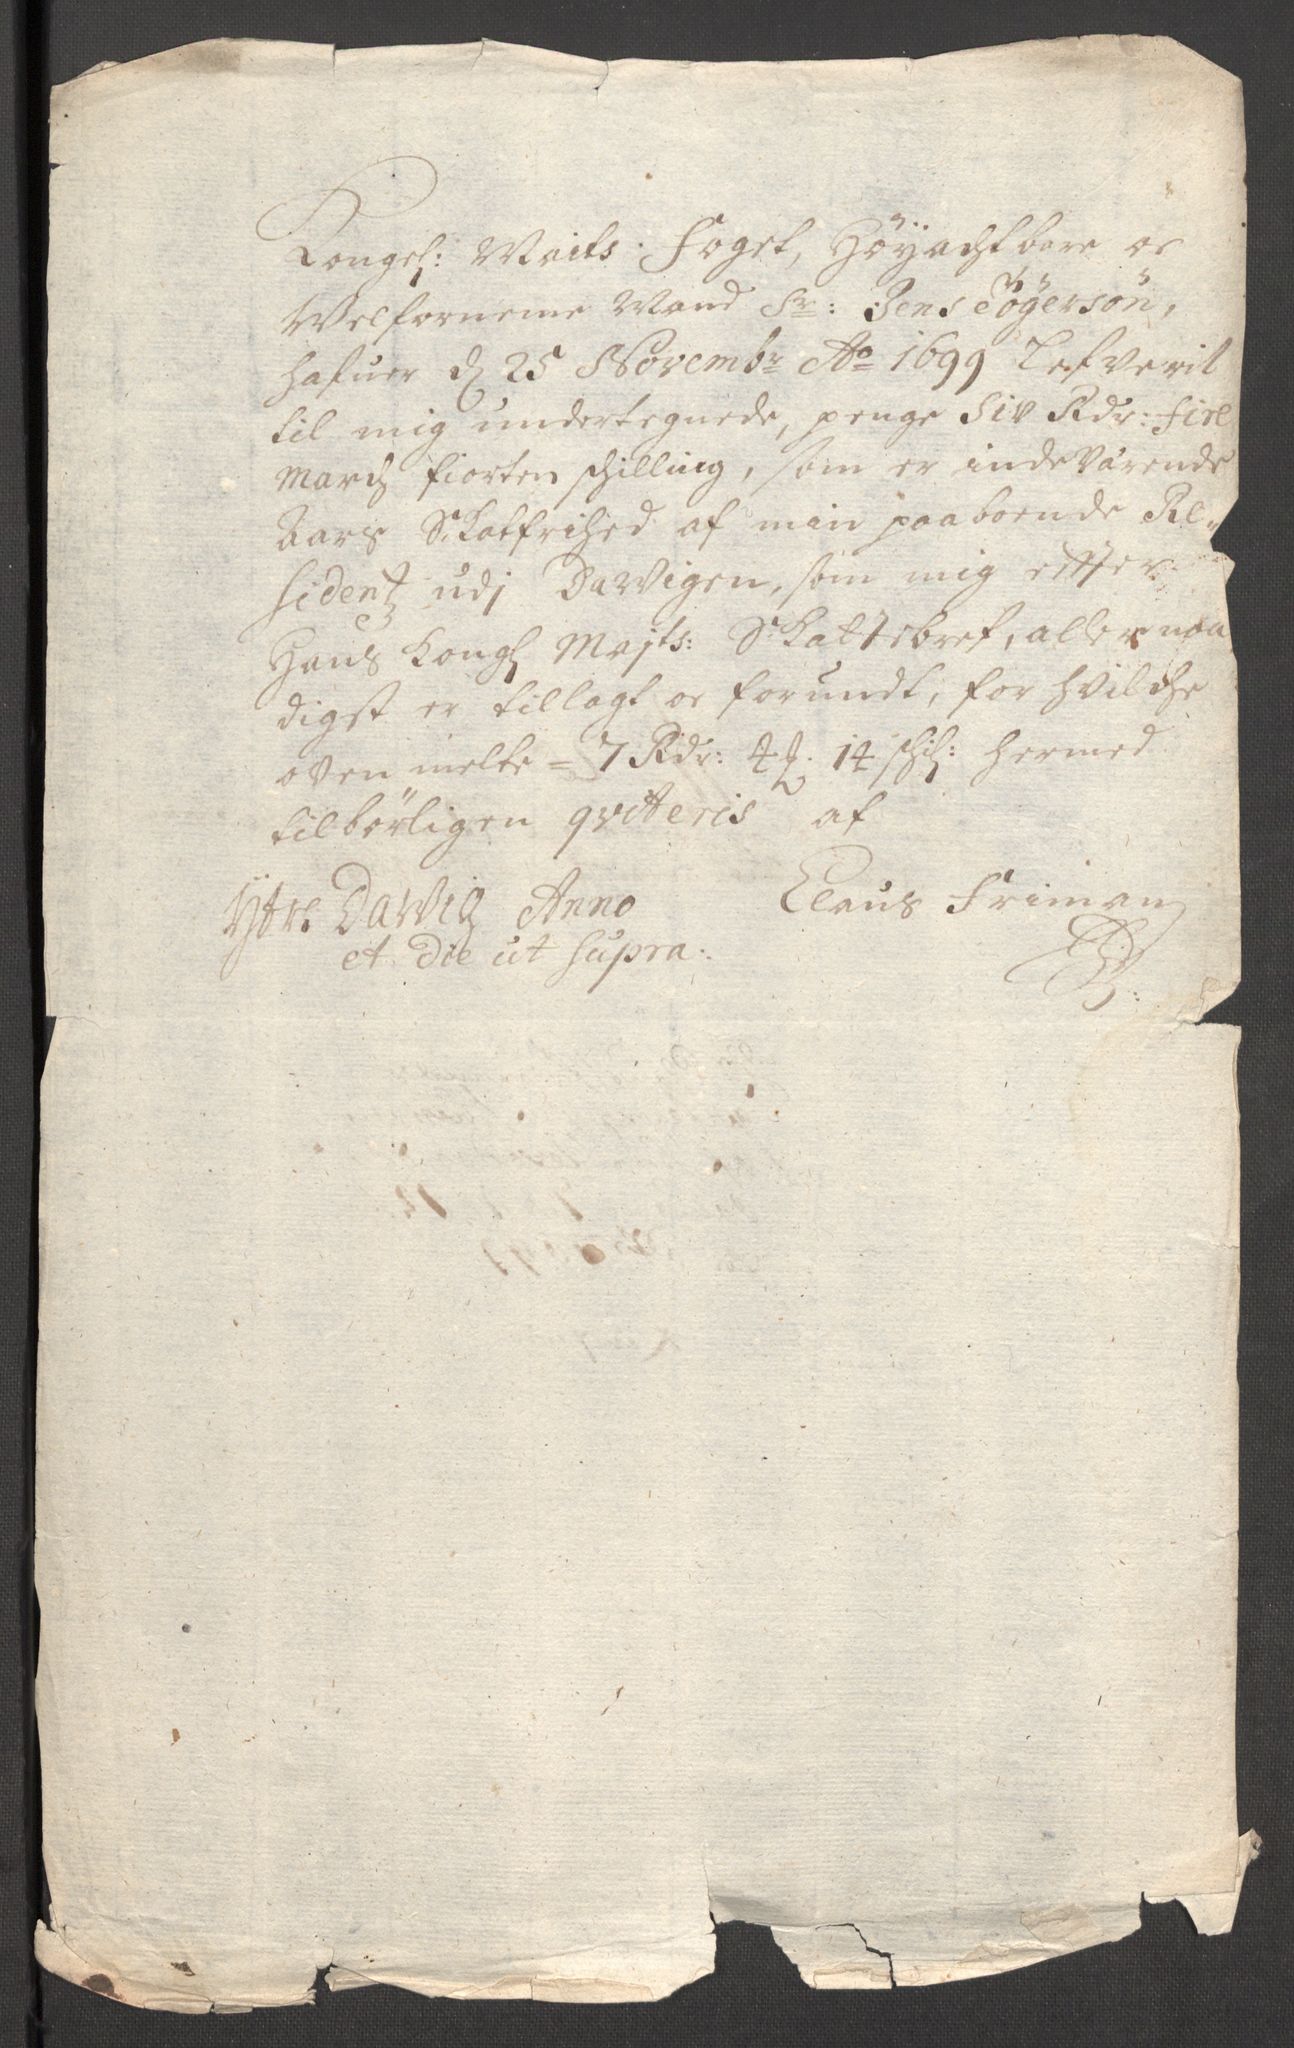 Kongel: Maits. Foget, Höÿachtbare oc
Welforneme Mand Sr: Jens Tögersön,
hafuer d 25 Novembr Ao 1699 Lefverit
til mig undertegnede, penge Siv Rdr: fire
March fiorten schilling, som er indeVärende
Aars Skatfrihed af min paaboende Re-
sidentz udj Dawigen, som mig effter
Hans Kongl Majts: Skattebref, aller naa
digst er tillagt oc forundt, for hvilche
oven melte = 7 Rdr: 4 ₰. 14 schil: hermed
tilbörligen qvitteris af
Ytre Dawig Anno Claus Friman
et Die ut supra: